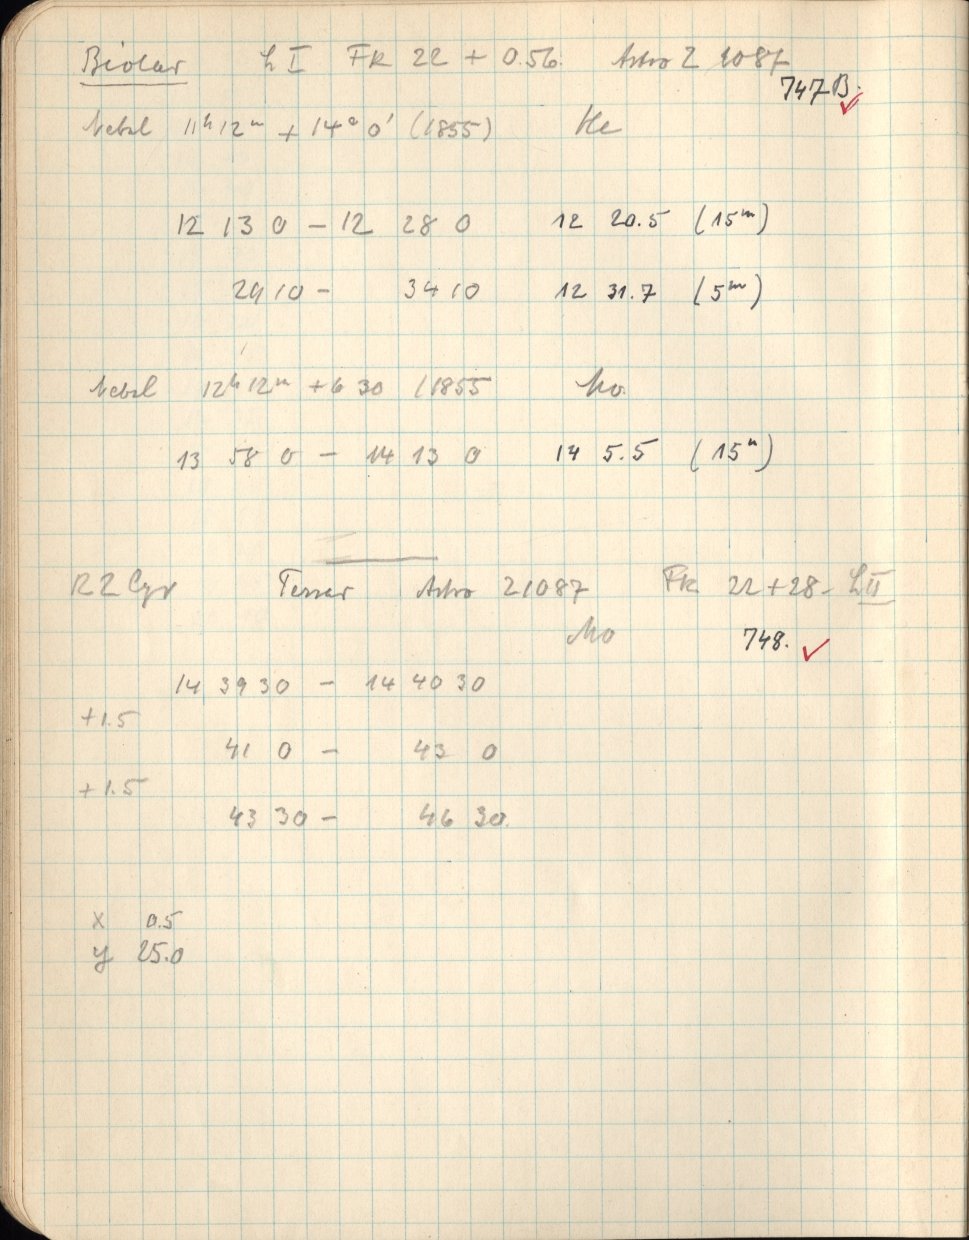 Biotar L I FK 22 + 0.56. Astro Z 1087
747B.
Nebel 11h 12m + 14° 0' (1855) He
12 13 0 – 12 28 0 12 20.5 (15m)
29 10 – 34 10 12 31.7 (5m)
Nebel 12h 12m + 6 30 (1855 Mo
13 58 0 – 14 13 0 14 5.5 (15m)
RZ Cyg Tessar Astro Z 1087 FK 22 + 28 – L II
Mo 748.
14 39 30 – 14 40 30
+1.5
41 0 – 43 0
+1.5
43 30 – 46 30
x 0.5
y 25.0